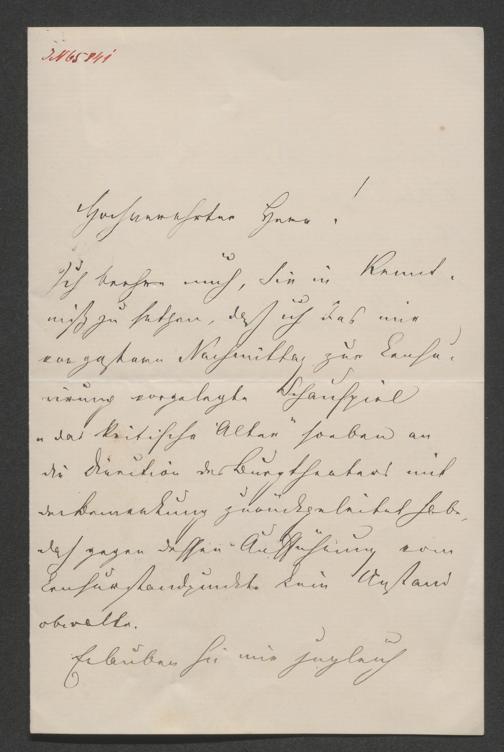 JN 65841
Hochverehrter Herr!
Ich beehre mich, Sie in Kennt-
niß zu setzen, daß ich das mir
vorgestern Nachmittag zur Censu-
rirung vorgelegte Schauspiel
„das kritische Alter" soeben an
die Direction des Burgtheaters mit
der Bemerkung zurückgeleitet habe,
daß gegen dessen Aufführung vom
Censurstandpunkte kein Anstand
obwalte.
Erlauben Sie mir zugleich